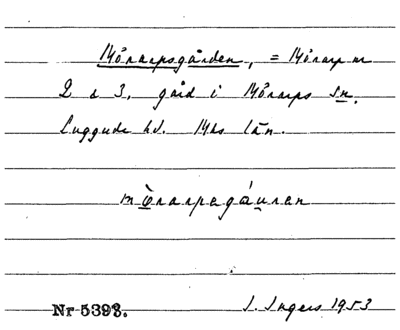 Mörarpsgården, = Mörarp nr
2 o 3, gård i Mörarps sn,
Luggude hd. Mhs län.
mö̀rarpsgáu̯ren
Nr 5393.
I. Ingers 1953